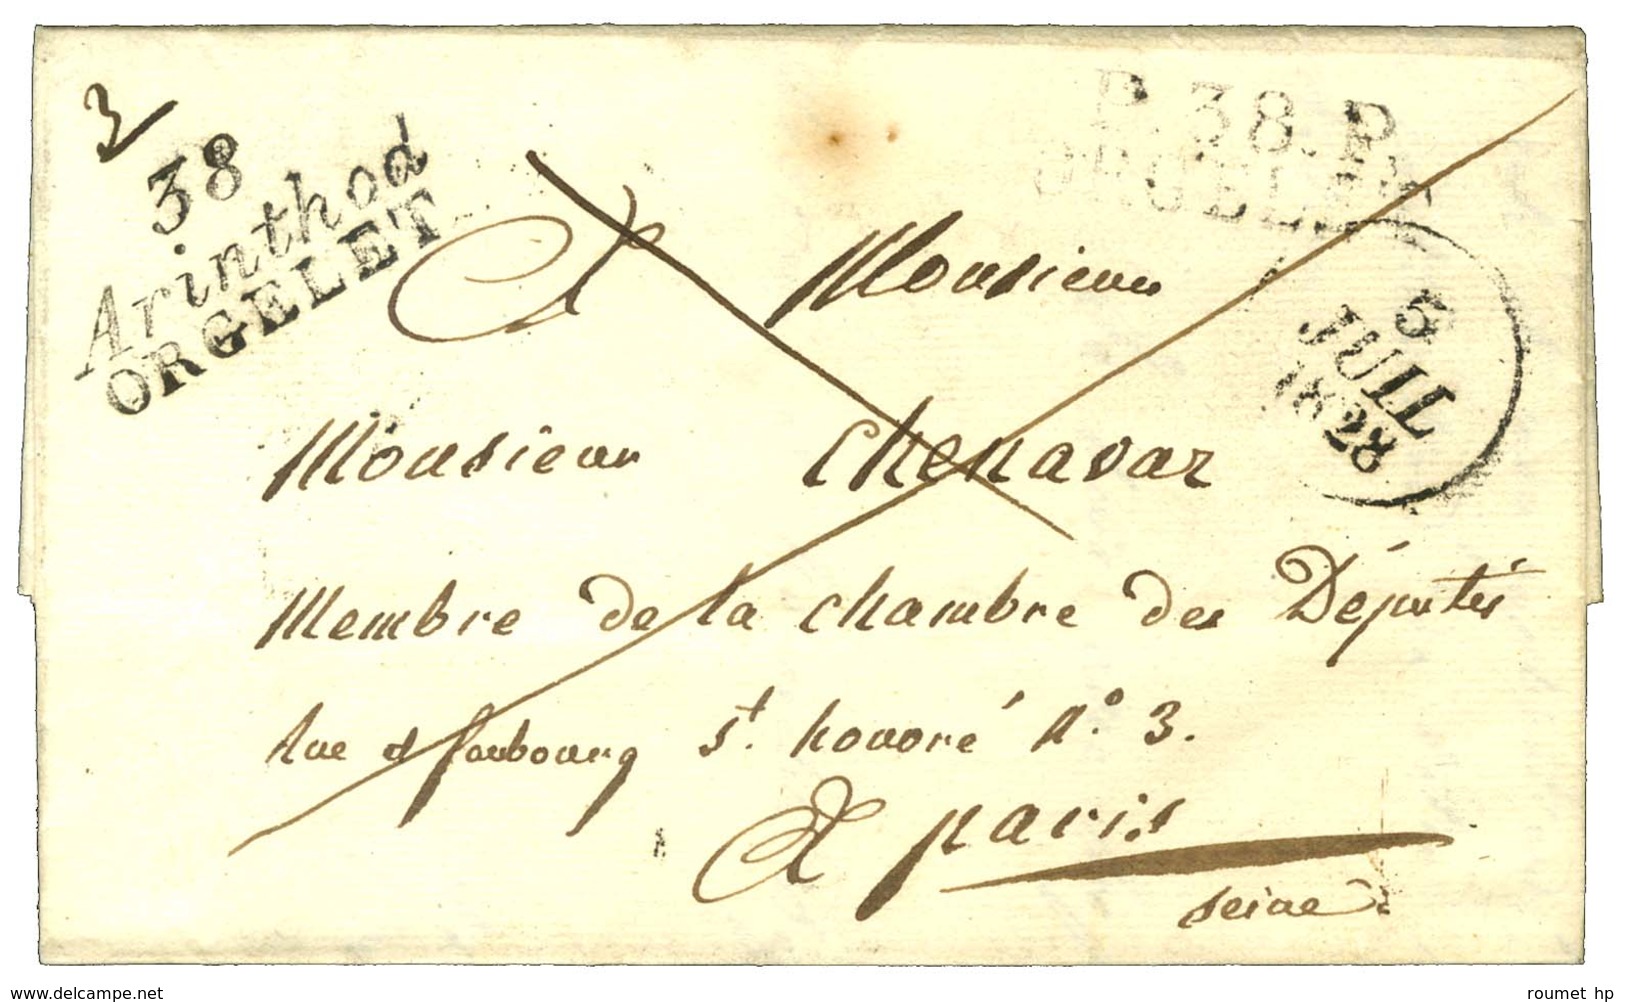 3
38
Arinthod
ORGELET
P.38.P.
ORGELET
5
JUIL
1828
A Monsieur
Monsieur Chenavaz
Membre de la chambre des Députés
Rue d faubourg St. honoré N° 3.
A paris
seine
www.delcampe.net
roumet hp